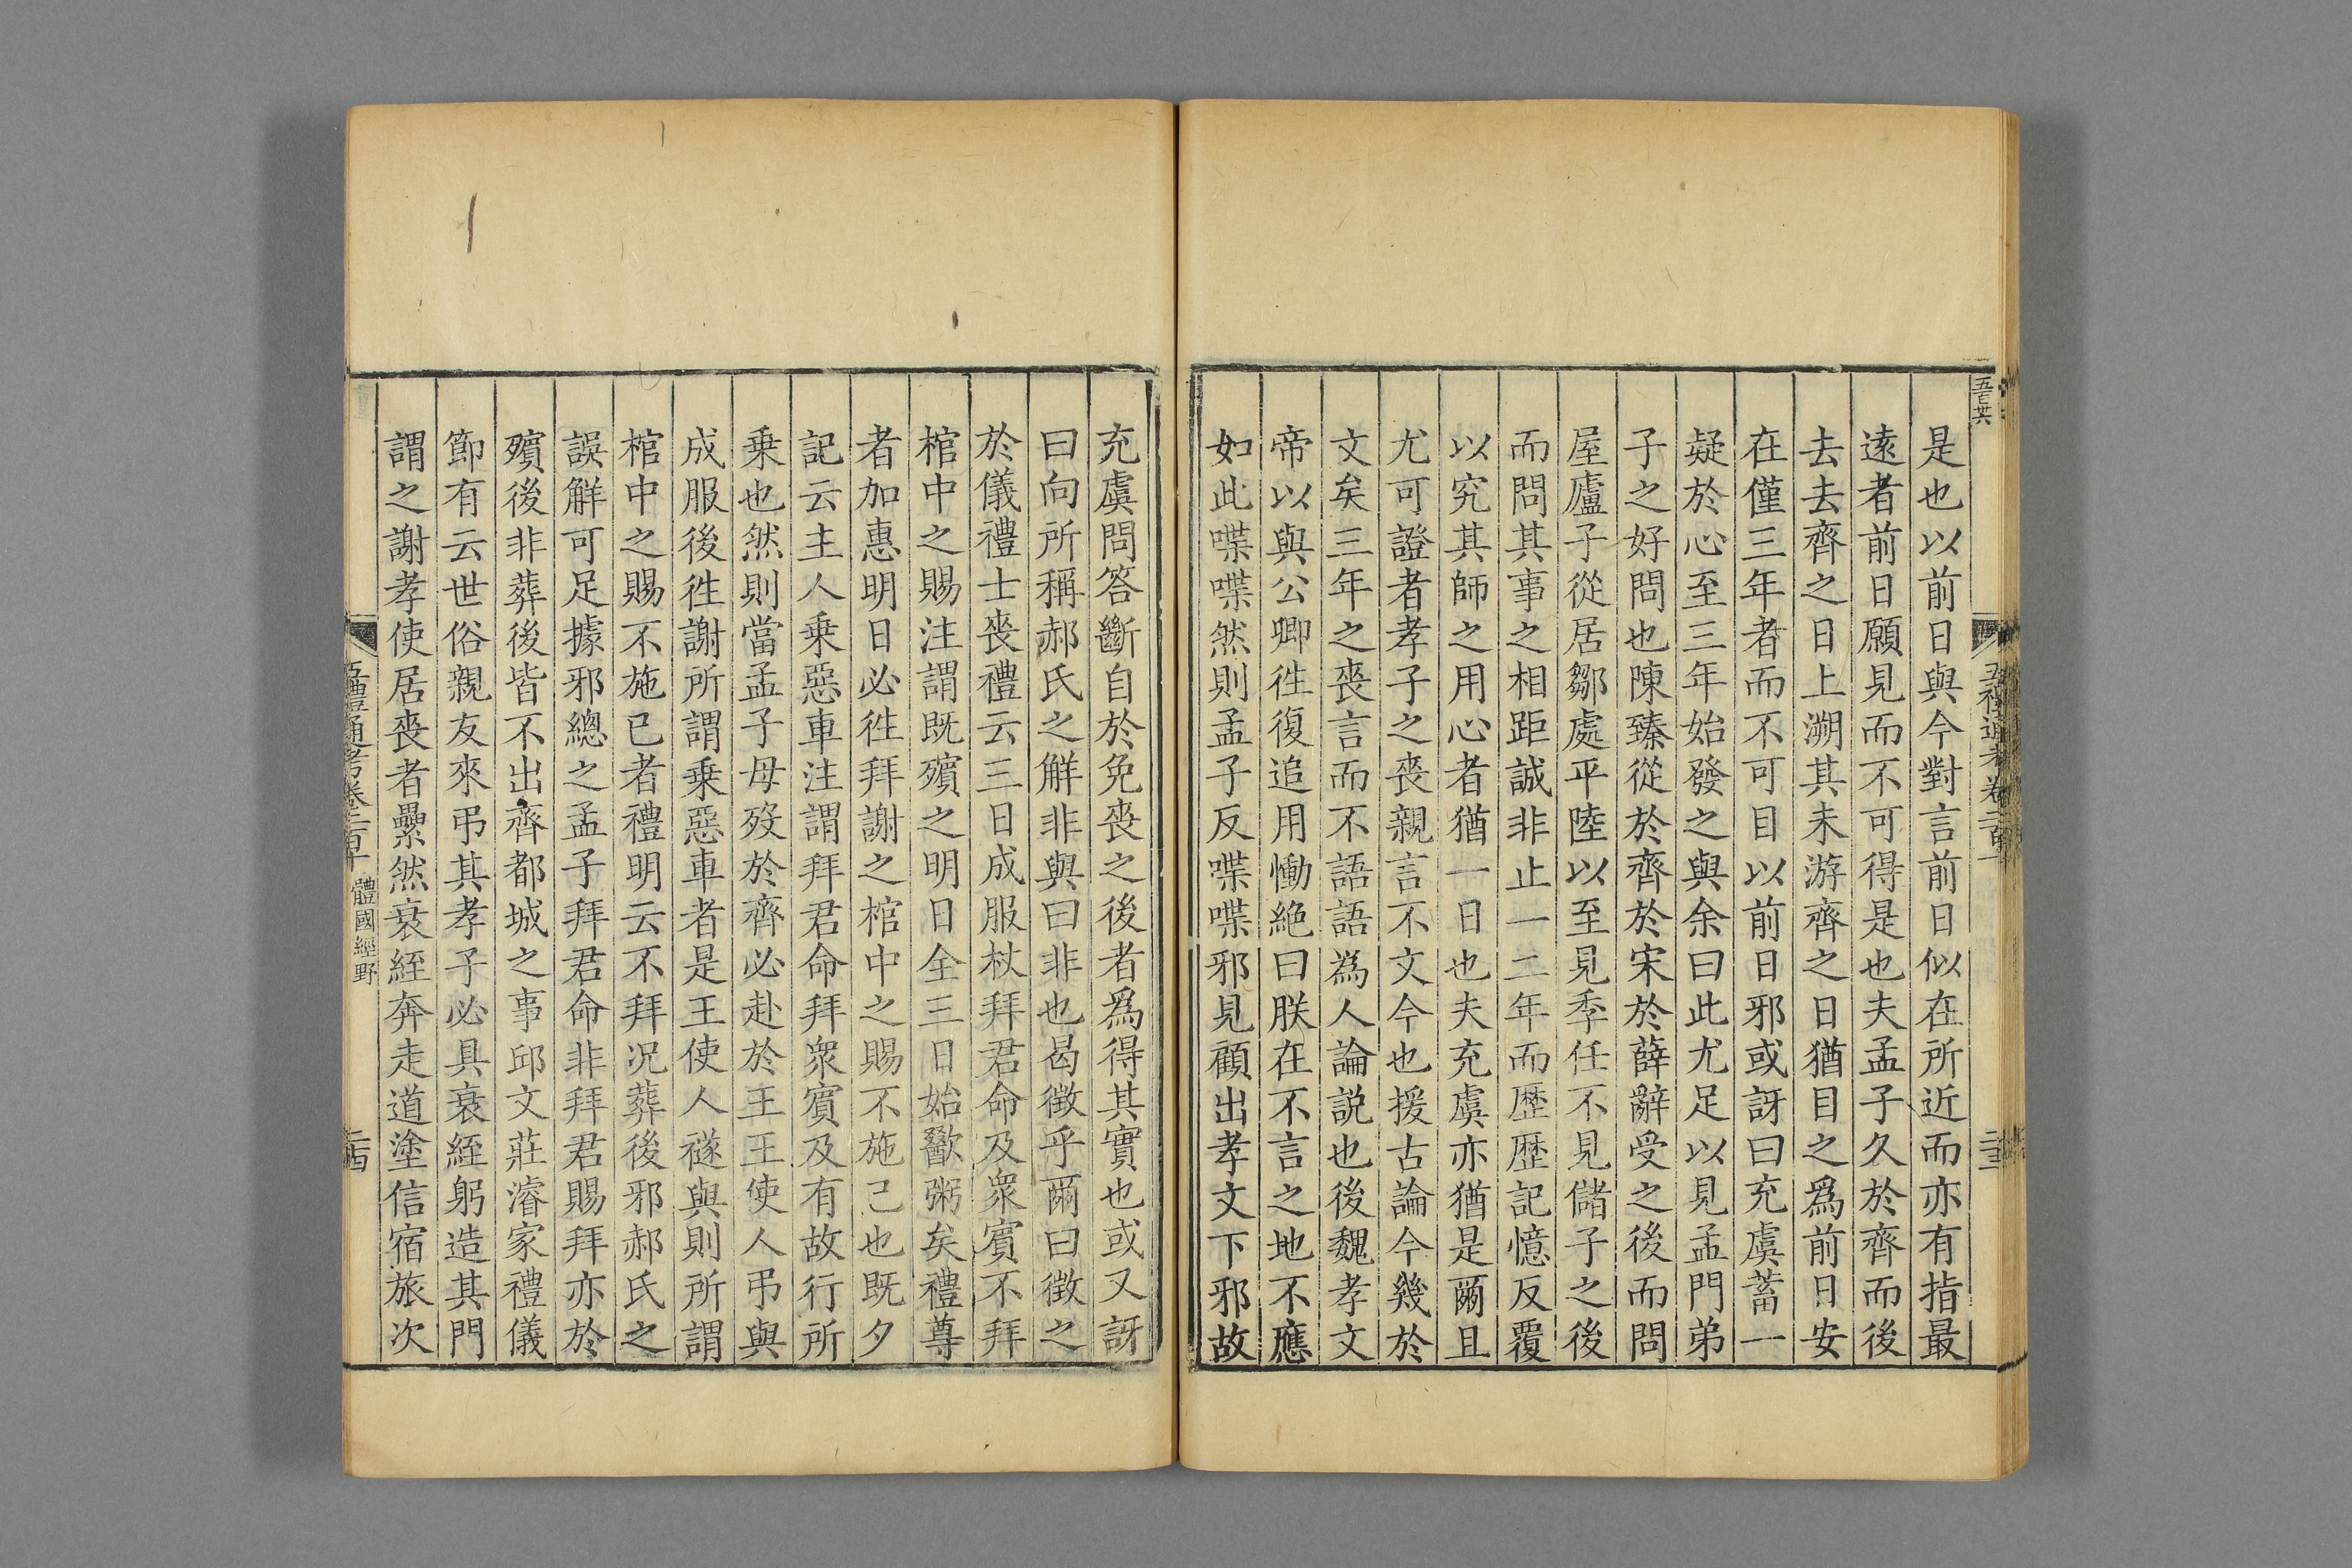 是也以前日與今對言前日似在所近而亦有指最
遠者前日願見而不可得是也夫孟子久於齊而後
去去齊之日上溯其未游齊之日猶目之爲前日安
在僅三年者而不可目以前日邪或訝曰充虞蓄一
疑於心至三年始發之與余曰此尤足以見孟門弟
子之好問也陳臻從於齊於宋於薛辭受之後而問
屋廬子從居鄒處平陸以至見季任不見儲子之後
而問其事之相距誠非止一二年而歷歷記憶反覆
以究其師之用心者猶一日也夫充虞亦猶是爾且
尤可證者孝子之喪親言不文今也援古論今幾於
文矣三年之喪言而不語語為人論説也後魏孝文
帝以與公卿徃復追用慟絶曰朕在不言之地不應
如此喋喋然則孟子反喋喋邪見顧出孝文下邪故
充虞問答斷自於免喪之後者爲得其實也或又訝
曰向所稱郝氏之解非與曰非也曷徵乎爾曰徵之
於儀禮士喪禮云三日成服杖拜君命及眾賓不拜
棺中之賜注謂既殯之明日全三日始歠粥矣禮尊
者加惠明日必徃拜謝之棺中之賜不施己也既夕
記云主人乗惡車注謂拜君命拜眾賓及有故行所
乗也然則當孟子母歿於齊必赴於王王使人弔與
成服後徃謝所謂乗惡車者是王使人禭與則所謂
棺中之賜不施已者禮明云不拜况葬後邪郝氏之
誤解可足據邪總之孟子拜君命非拜君賜拜亦於
殯後非葬後皆不出齊都城之事邱文莊濬家禮儀
節有云世俗親友來弔其孝子必具衰絰躬造其門
謂之謝孝使居喪者纍然衰絰奔走道塗信宿旅次
五禮通考卷二百十
體國經野
二十四